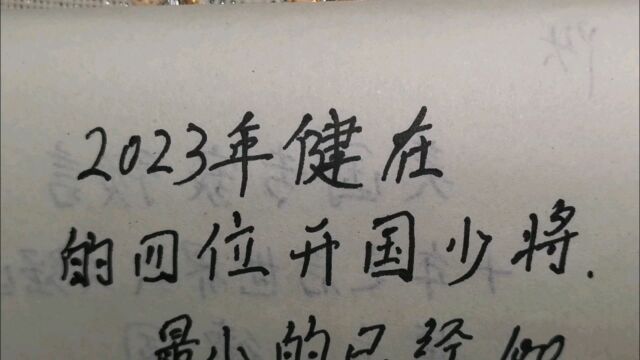 2023年健在
的四位开国少将.
最小的已经100